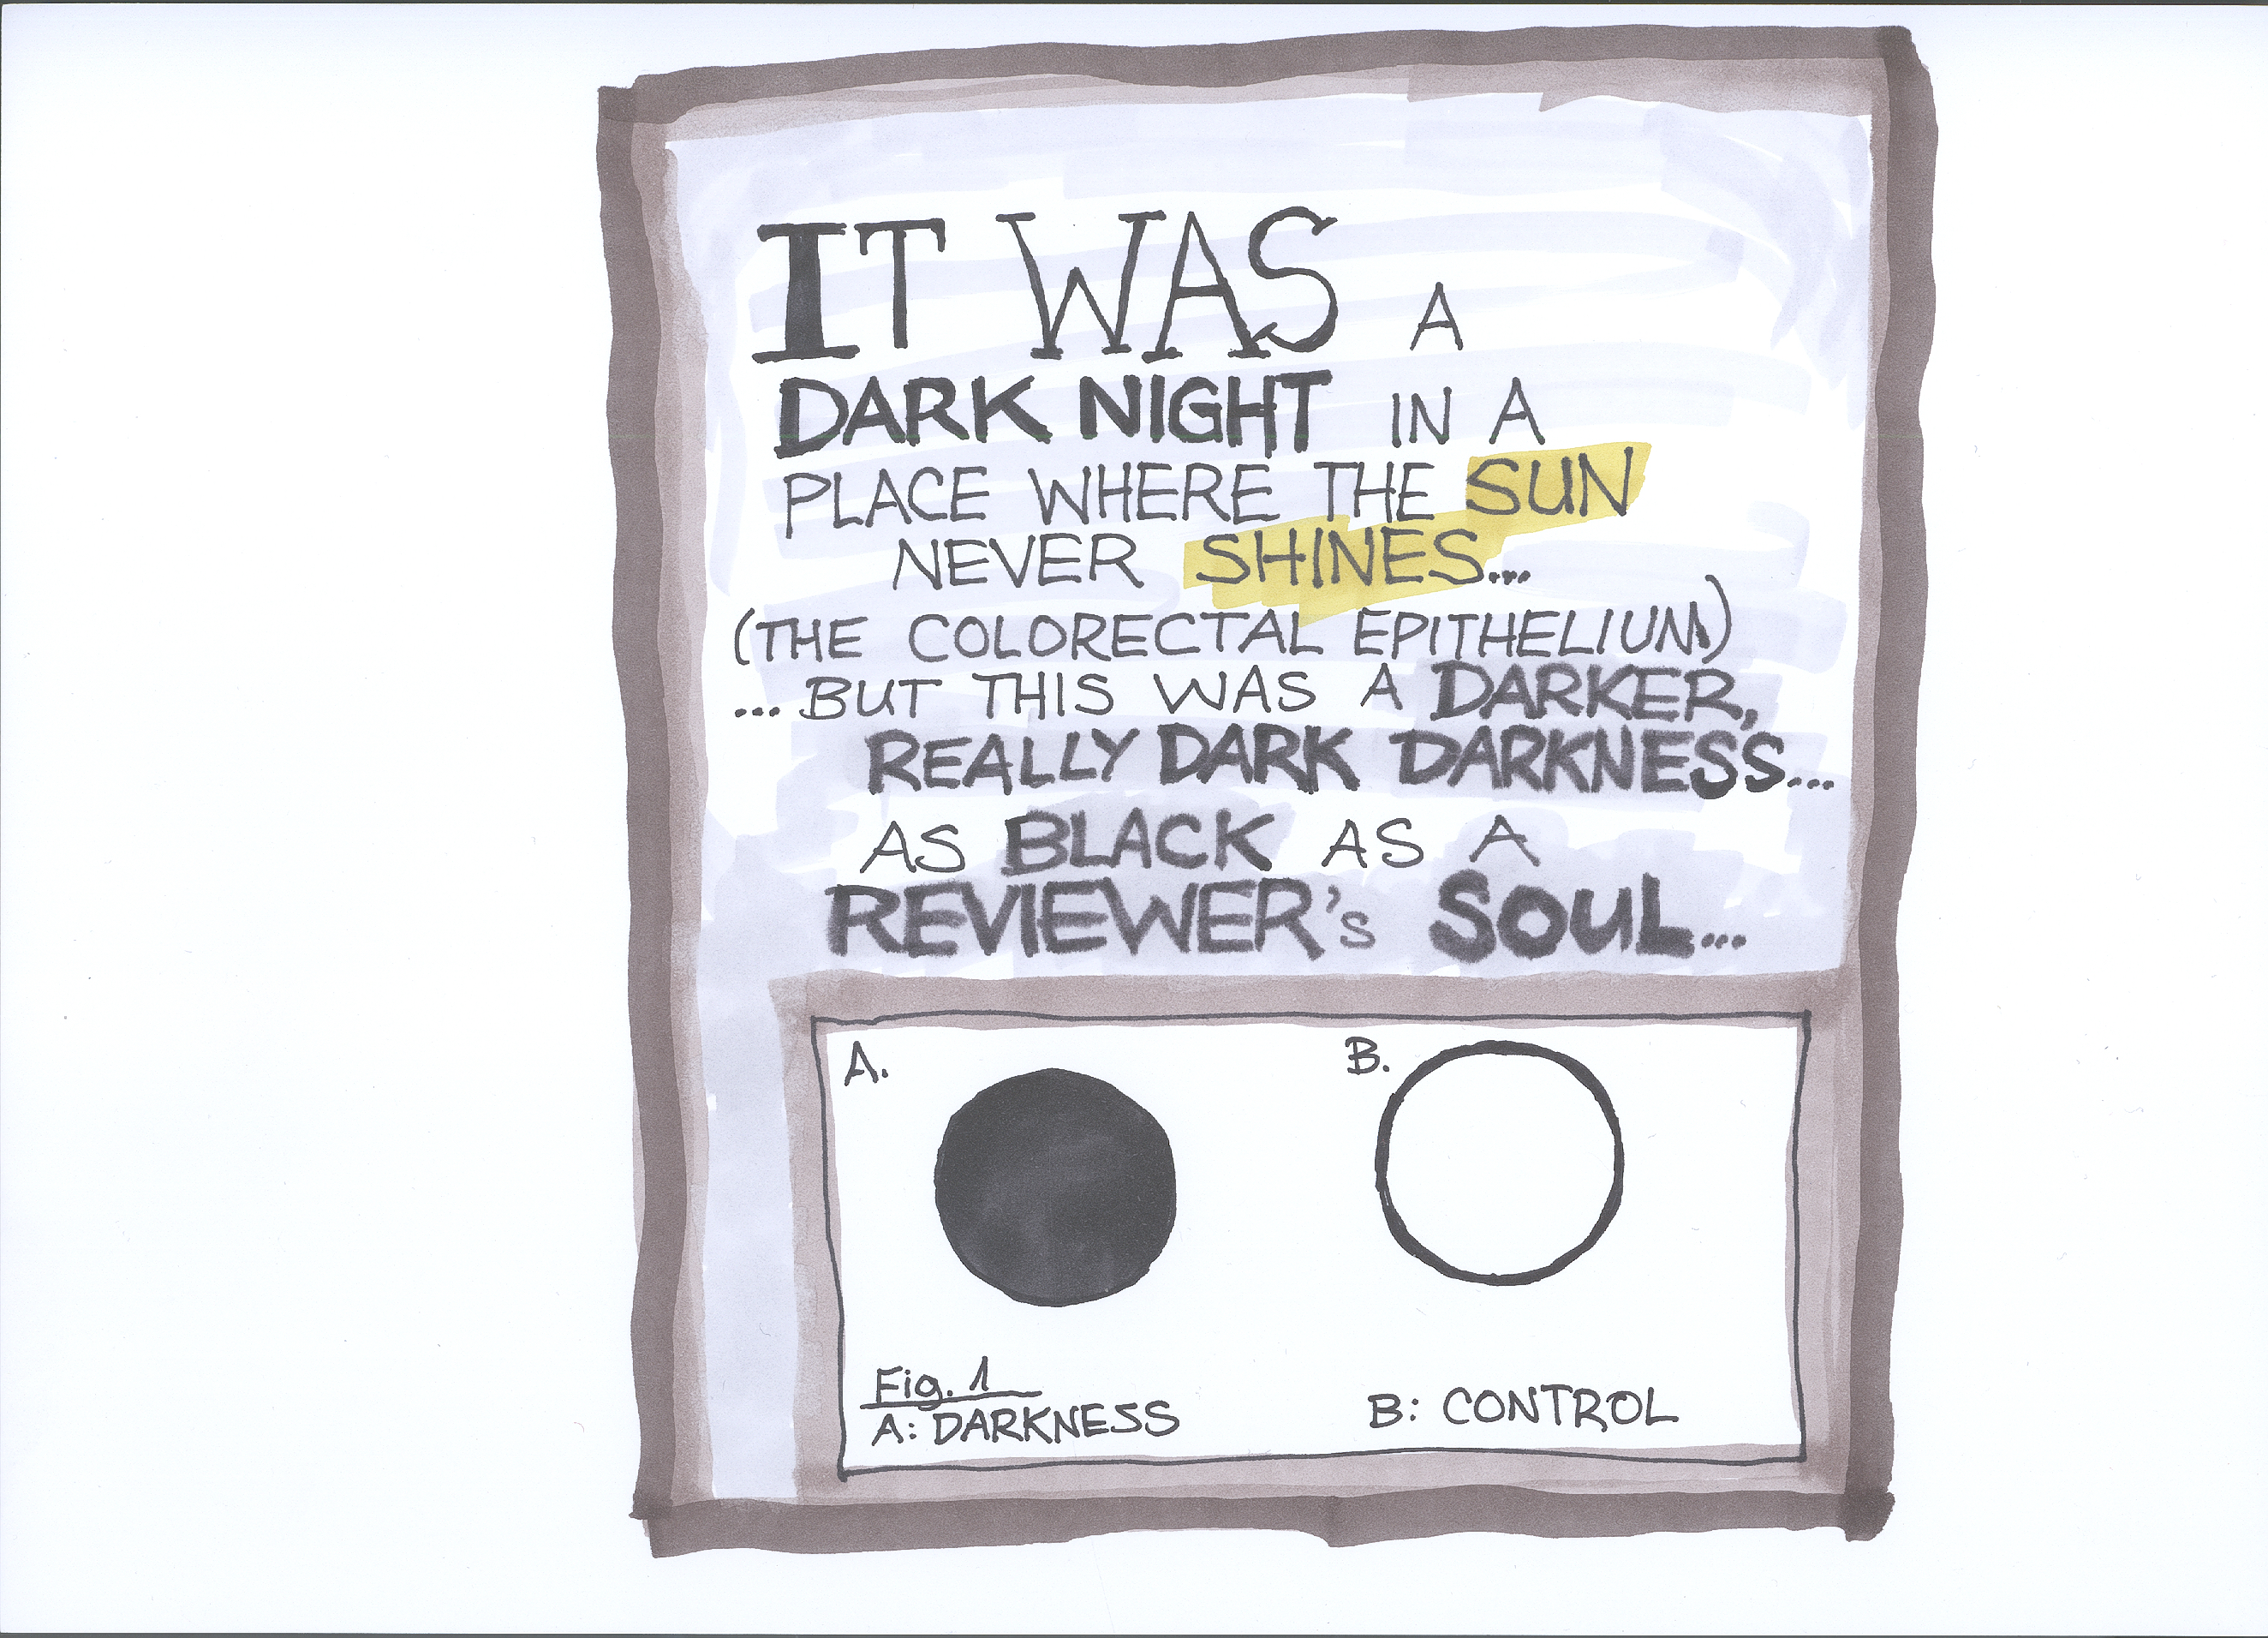 IT WAS A
DARK NIGHT IN A
PLACE WHERE THE SUN
NEVER SHINES...
(THE COLORECTAL EPITHELIUM)
...BUT THIS WAS A DARKER,
REALLY DARK DARKNESS...
AS BLACK AS A
REVIEWER's SOUL...
A.
B.
Fig. 1
A: DARKNESS
B: CONTROL